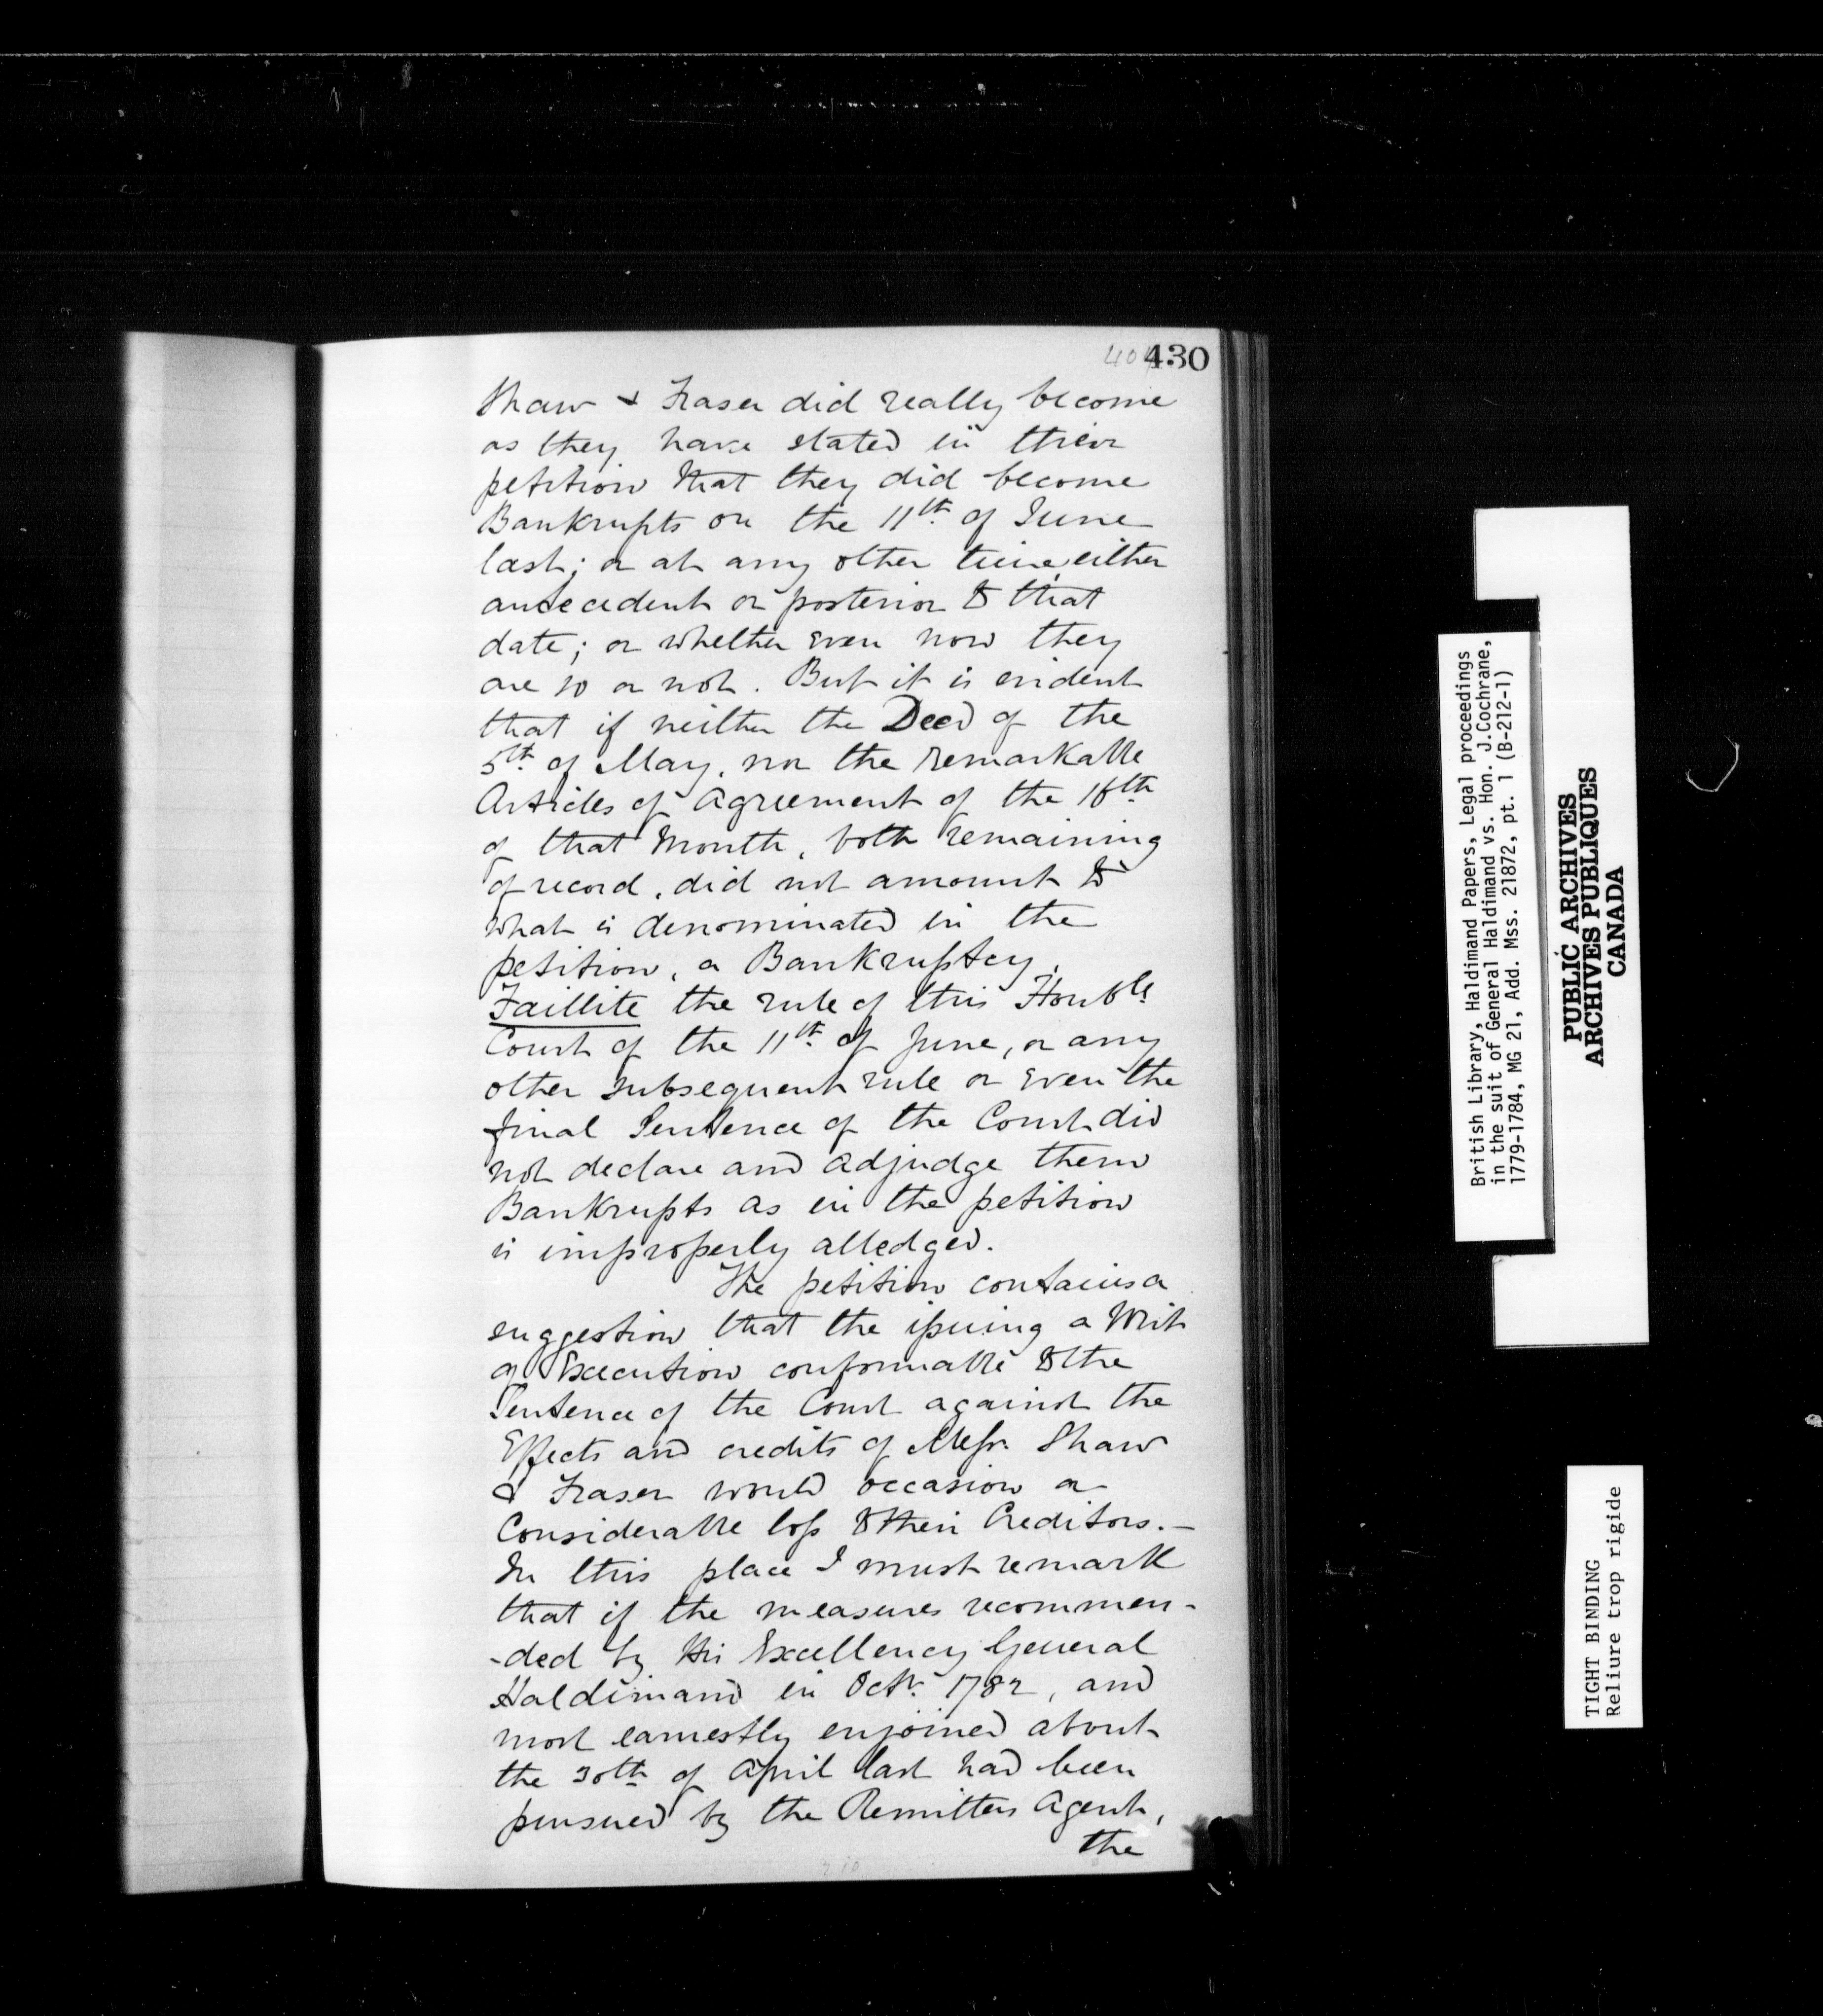 430
Shaw & Fraser did really become
as they have stated in their
petition that they did become
Bankrupts on the 11th of June
last; or at any other time, either
antecedent or posterior to that
date; or whether even now they
are so or not. But it is evident
that if neither the Deed of the
5th of May, nor the remarkable
Articles of Agreement of the 16th
of that Month, both remaining
of record, did not amount to
what is denominated in the
petition, a Bankruptcy,
Faillite the rule of this Honble
Court of the 11th of June, or any
other subsequent rule or even the
final Sentence of the Court did
not declare and adjudge them
Bankrupts as in the petition
is improperly alledged.
The petition contains a
suggestion that the issuing a Writ
of Execution conformable to the
Sentence of the Court against the
Effects and credits of Messr. Shaw
& Fraser would occasion a
Considerable loss to their Creditors.—
In this place I must remark
that if the measures recommen-
-ded by His Excellency General
Haldimand in Octr. 1782, and
most earnestly enjoined about
the 30th of April last had been
pursued by the Remitters Agent,
the
British Library, Haldimand Papers, Legal proceedings
in the suit of General Haldimand vs. Hon. J.Cochrane,
1779-1784, MG 21, Add. Mss. 21872, pt. 1 (B-212-1)
PUBLIC ARCHIVES
ARCHIVES PUBLIQUES
CANADA
TIGHT BINDING
Reliure trop rigide